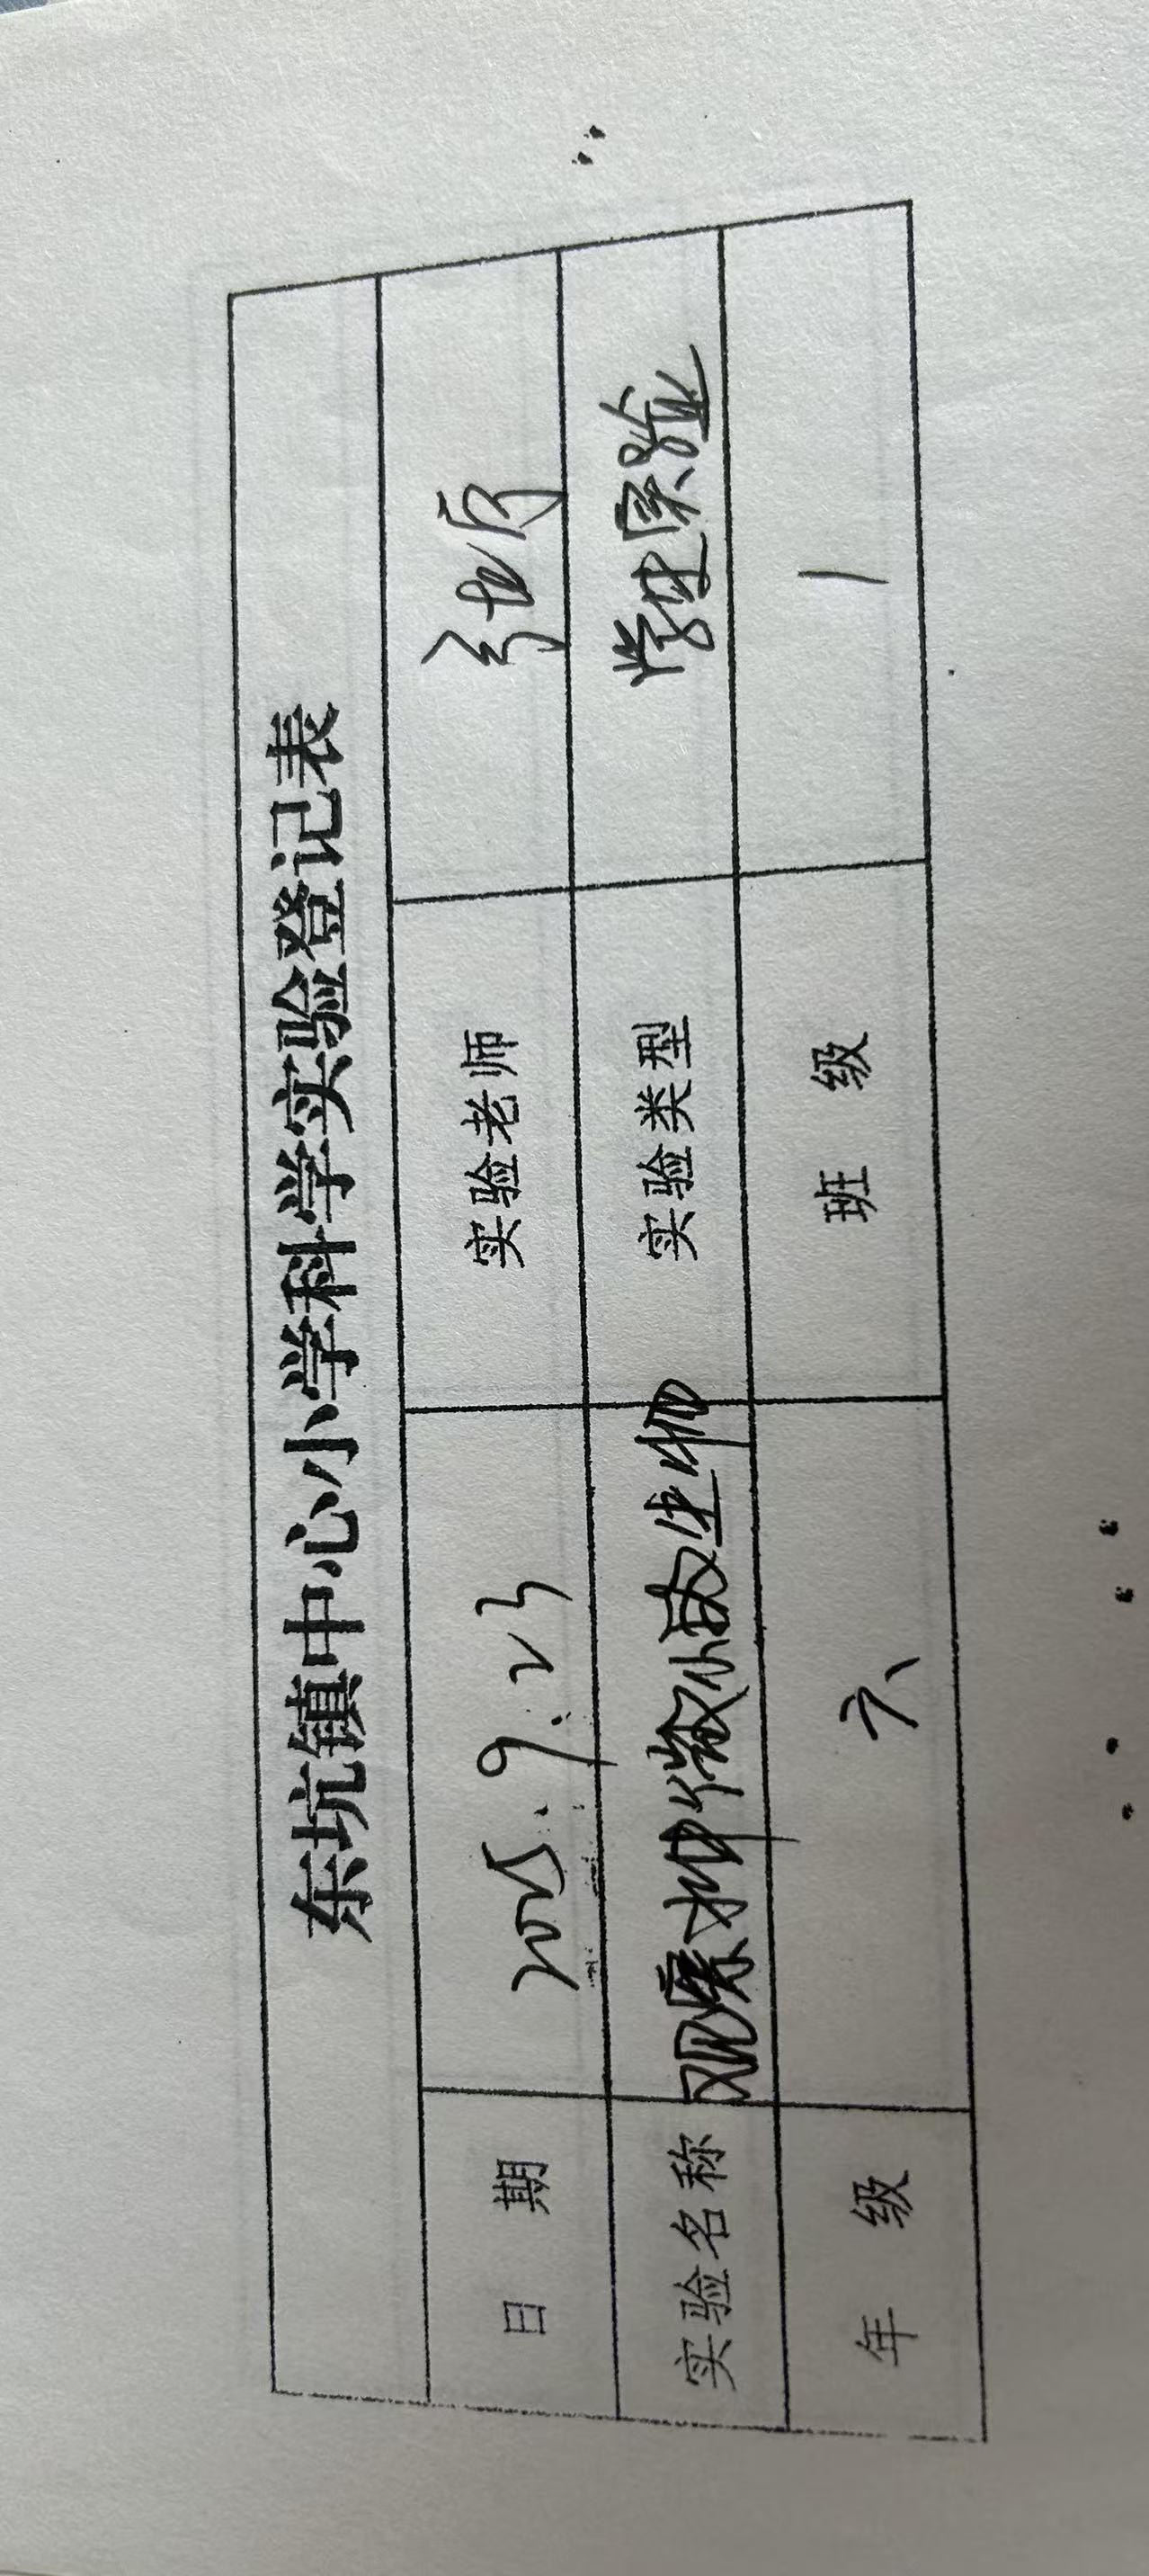 东坑镇中心小学科学实验登记表
日 期 2025.9.23 实验老师
实验名称 观察水中微小的生物 实验类型 学生实验
年 级 六 班 级 1